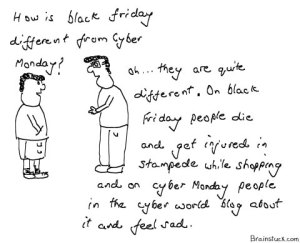 How is black friday
different from Cyber
Monday?
oh... they are quite
different. On black
Friday people die
and get injured in
stampede while shopping
and on cyber Monday people
in the cyber world blog about
it and feel sad.
Brainstuck.com